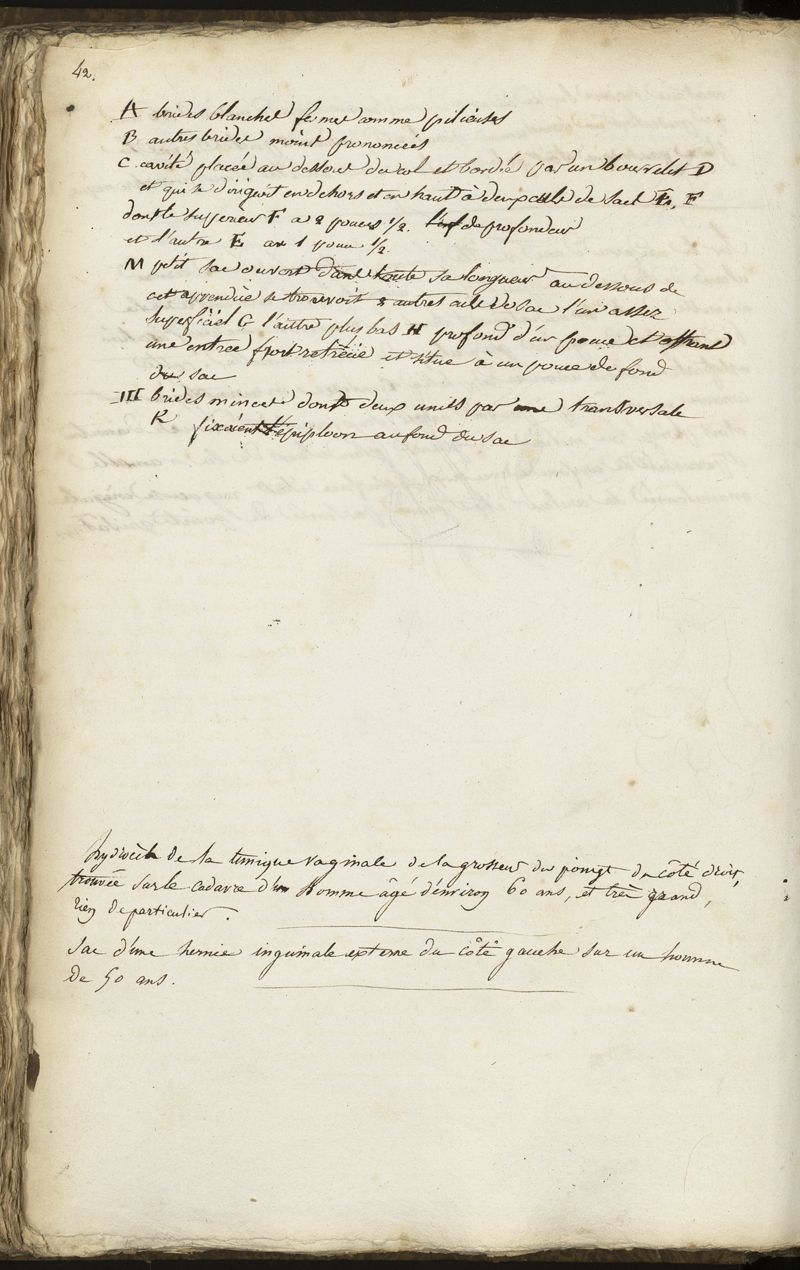 42.
A brides blanches fermes comme plissées
B autres brides moins prononcées
C. cavité placée au dessous du col et bordée par un bourrelet D
et qui se dirigeoit en dehors et en haut à deux culs de sacs E, F
dont le superieur F a 2 pouces 1/2. de profondeur
et l'autre E a 1 pouce 1/2
M petit sac ouvert dans toute sa longueur au dessous de
cet appendice se trouvoit 2 autres culs de sac l'un assez
superficiel G l'autre plus bas H profond d'un pouce et offrant
une entrée fort retrécie et situé à un pouce de fond
du sac
III brides minces dont deux unies par une transversale
K fixoient l'épiploon au fond du sac
hydrocèle de la tunique vaginale de la grosseur du poingt du côté droit,
trouvée sur le cadavre d'un homme âgé d'environ 60 ans, et très grand,
rien de particulier.
Sac d'une hernie inguinale externe du côté gauche sur un homme
de 50 ans.